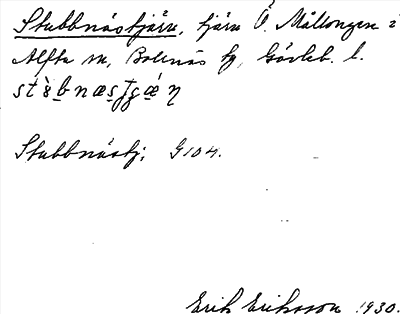 Stubbnästjärn, tjärn Ö. Mållongen i
Alfta sn, Bollnäs tg, Gävleb. l.
Stubbnästj; G104.
Erik Eriksson 1930.